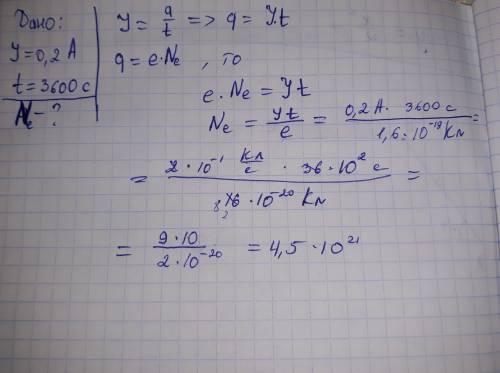 Дано:
У=0,2 А
t=3600 с
Nе - ?
У = q/t => q = У.t
q = e·Nе , то
e·Nе = Уt
Nе = Уt/e = 0,2 А · 3600 с / 1,6·10⁻¹⁹ Кл =
= 2·10⁻¹ Кл/с · 36·10² с / 16·10⁻²⁰ Кл =
= 9·10 / 2·10⁻²⁰ = 4,5·10²¹